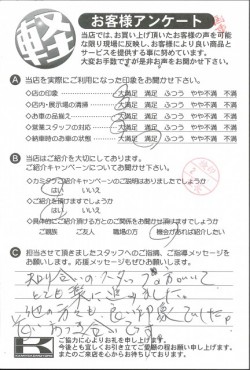 軽
お客様アンケート
当店では、お買い上げ頂いたお客様の声を可能
な限り現場に反映し、お客様により良い商品と
サービスを提供する事に努めています。
大変お手数ですが是非お声をお聞かせ下さい。
A 当店を実際にご利用になった印象をお聞かせ下さい。
・店の印象 大満足 満足 ふつう やや不満 不満
・店内・展示場の清掃 大満足 満足 ふつう やや不満 不満
・お車の品揃え 大満足 満足 ふつう やや不満 不満
・営業スタッフの対応 大満足 満足 ふつう やや不満 不満
・納車時のお車の状態 大満足 満足 ふつう やや不満 不満
B 当店はご紹介を大切にしております。
ご紹介キャンペーンについてお聞かせ下さい。
・カミタケご紹介キャンペーンのご説明はありましたでしょうか
はい いいえ
・ご紹介を頂けますでしょうか
はい いいえ
・具体的にご紹介頂ける方とのご関係をお聞かせ頂けますでしょうか
ご親族 ご友人 職場の方 機会があれば紹介したい
C 担当させて頂きましたスタッフへのご指摘、ご指導メッセージを
お願いします。応援メッセージもぜひお願いします。
知り合いのスタッフの方がいて
とても楽に進めました。
他の方も
ご協力に心よりお礼を申し上げます。
今後とも宜しくお引き立てご愛顧の程お願い申し上げます。
またのご来店を心からお待ちしております。